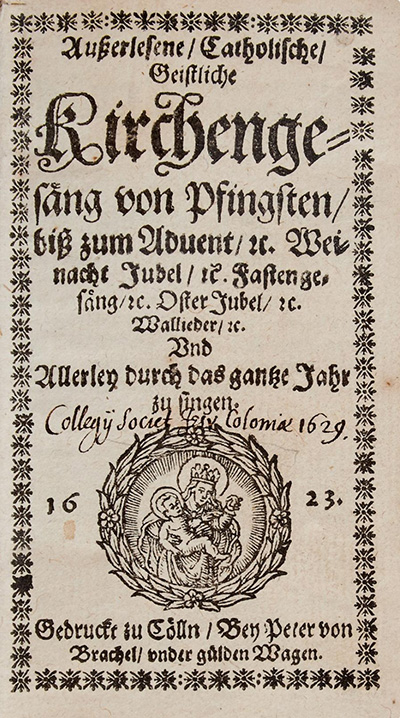 Außerlesene / Catholische /
Geistliche
Kirchenge-
säng von Pfingsten /
biß zum Aduent / ꝛc. Wei-
nacht Jubel / ꝛc. Fastenge-
säng / ꝛc. Oster Jubel / ꝛc.
Wallieder / ꝛc.
Vnd
Allerley durch das gantze Jahr
zu singen.
Collegÿ Societ Jesv Coloniæ 1629.
16 23.
Gedruckt zu Cölln / Bey Peter von
Brachel / vnder gülden Wagen.